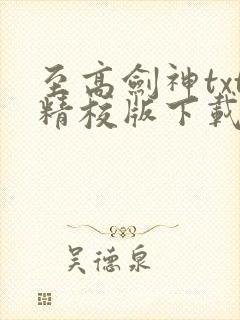 至高劍神txt
精校版下載
吴德泉